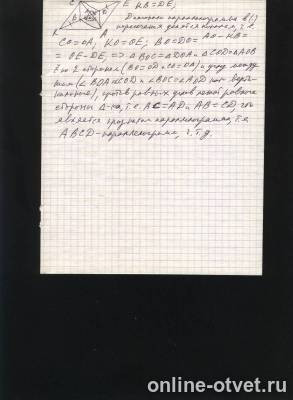 C E KB=DE,
Диагонали параллелограмма в (·)
K A пересечения делятся пополам, т.е.
CO=OA; KO=OE; BO=DO= AO-KB=
= OE-DE, => △BOC=△DOA и △COD=△AOB
по 2 сторонам (BO=OD и CO=OA) и углу между
ними (∠BOA=∠COD и ∠BOC=∠AOD как верти-
кальные), против равных углов лежат равные
стороны △-ка, т.е. AC=AD и AB=CD, что
является признаком параллелограмма, т.е.
ABCD-параллелограмм, ч.т.д.
online-otvet.ru